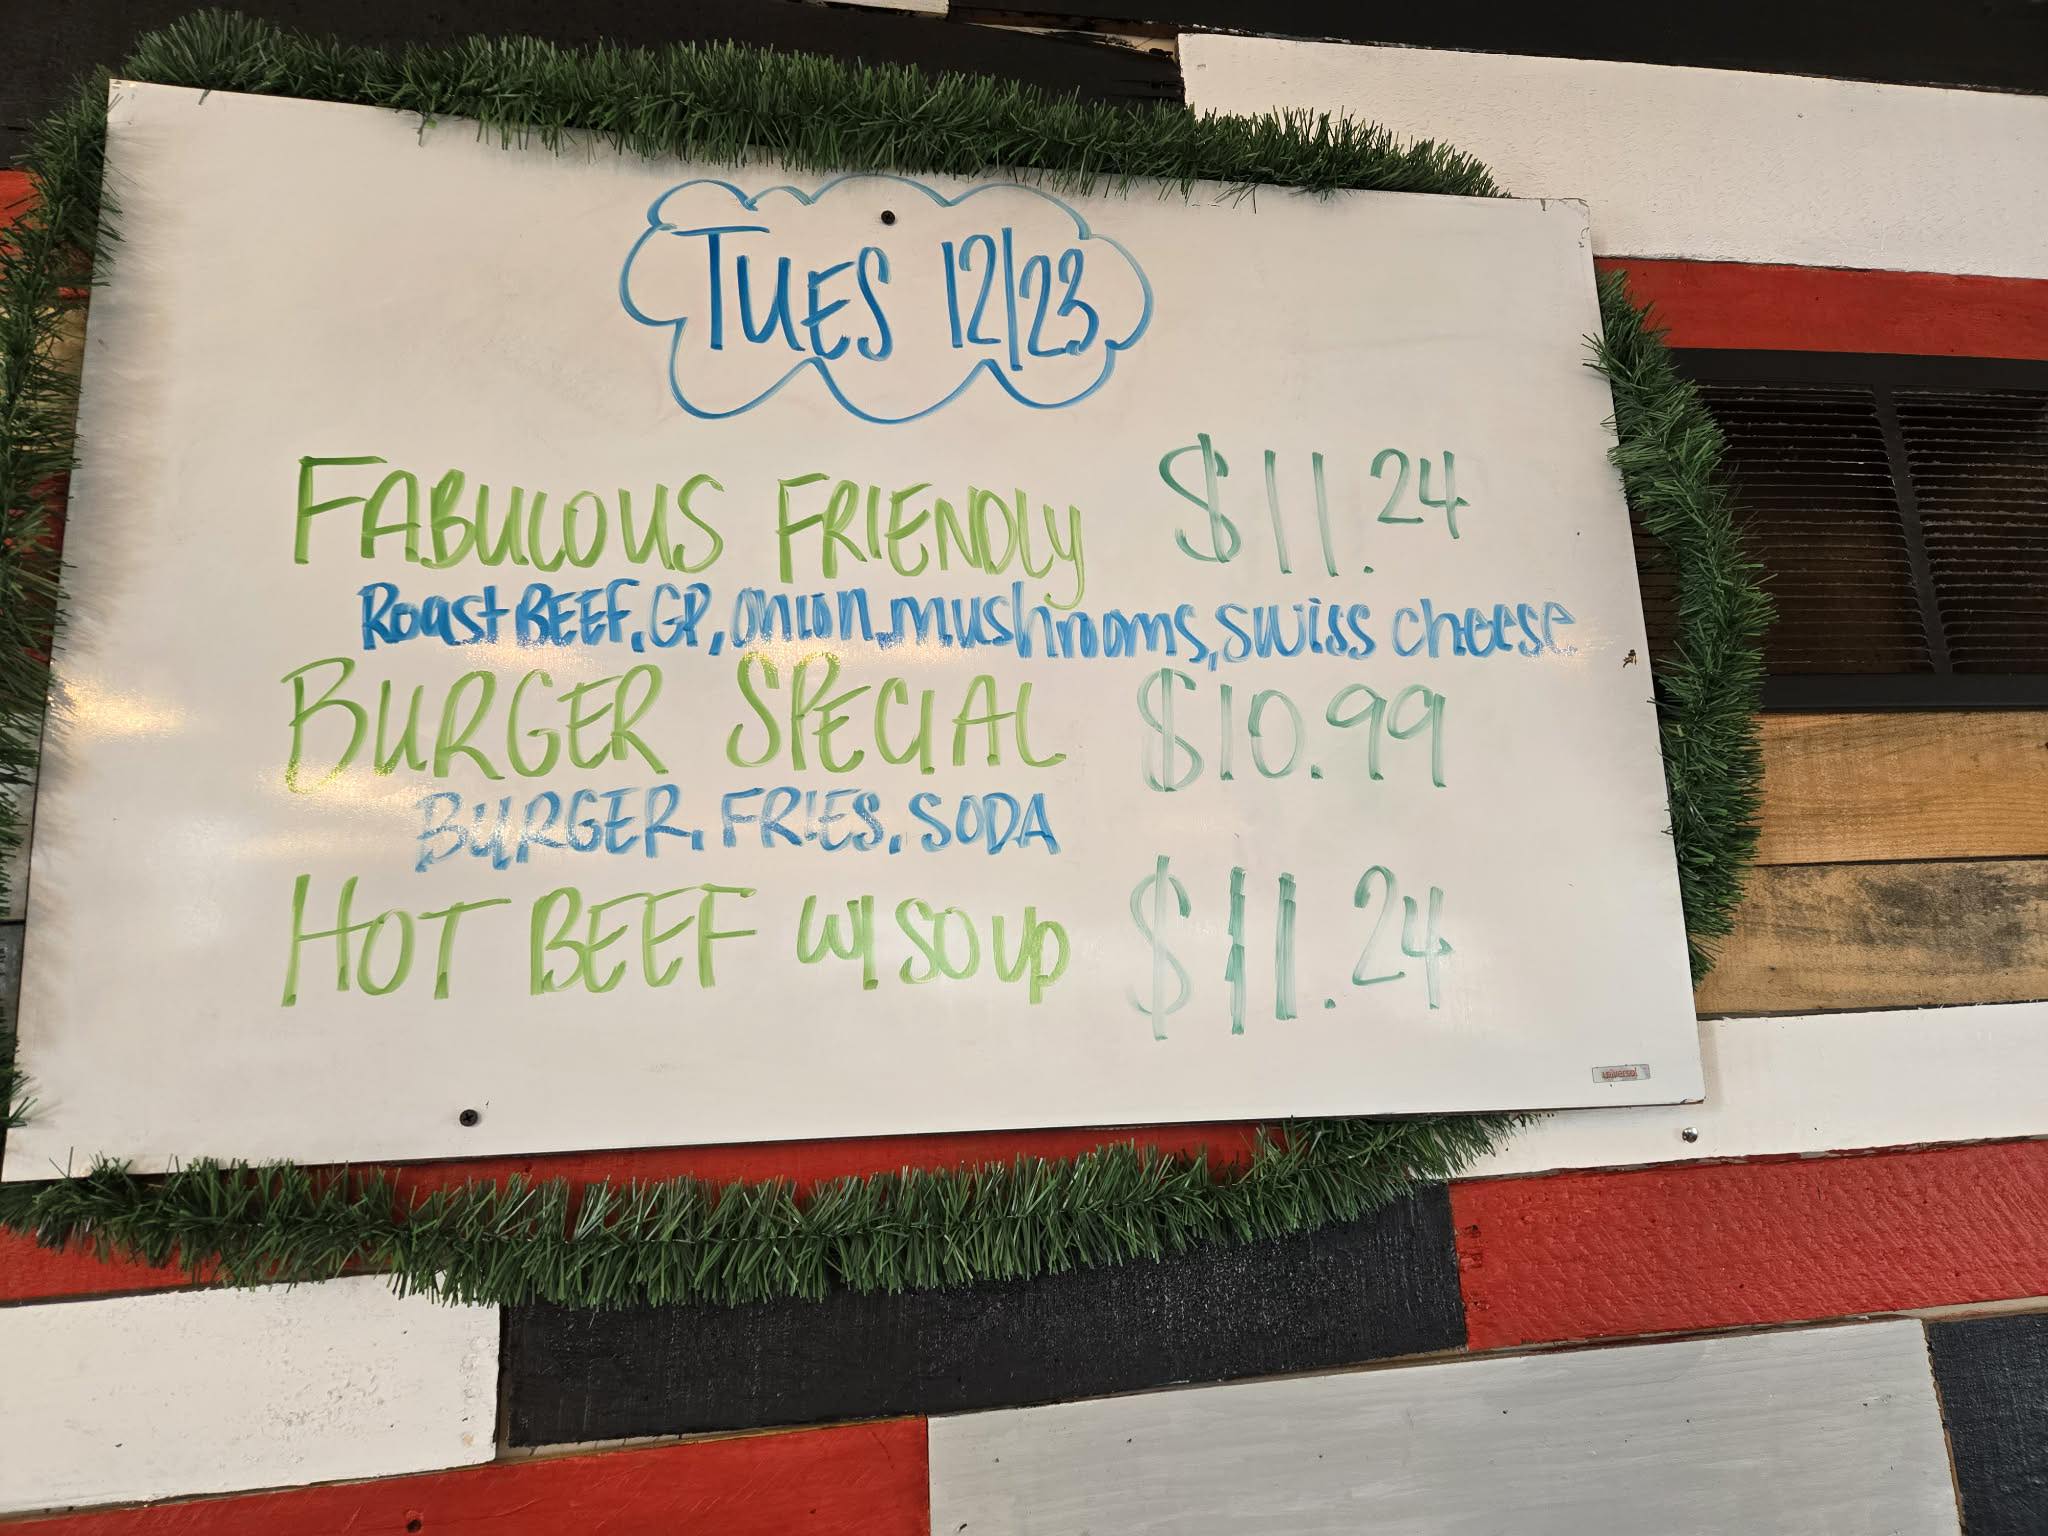 TUES 12/23
FABULOUS FRIENDLY $11.24
Roast BEEF, GP, onion, mushrooms, swiss cheese
BURGER SPECIAL $10.99
BURGER, FRIES, SODA
HOT BEEF w/ soup $11.24
universal